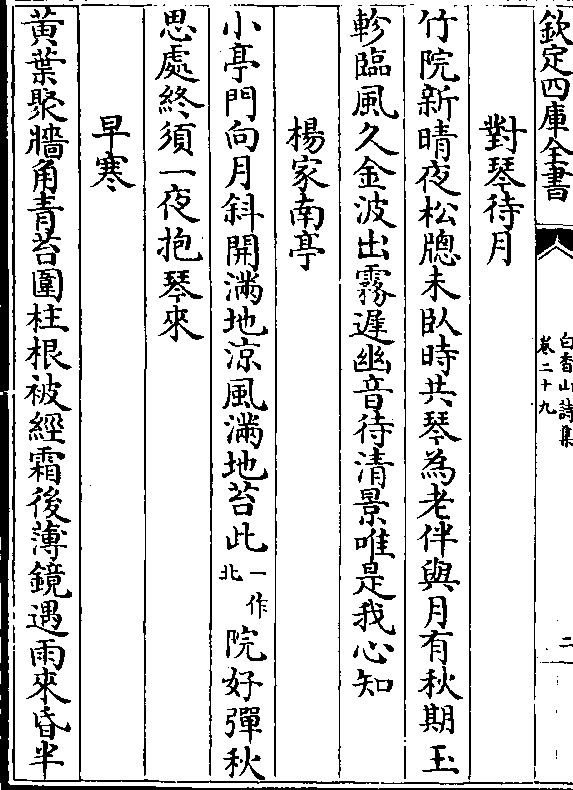 欽定四庫全書
白香山詩集
卷二十九
二
對琴待月
竹院新晴夜松牕未臥時共琴為老伴與月有秋期玉
軫臨風久金波出霧遲幽音待清景唯是我心知
楊家南亭
小亭門向月斜開滿地涼風滿地苔此一作北院好彈秋
思處終須一夜抱琴來
早寒
黃葉聚牆角青苔圍柱根被經霜後薄鏡遇雨來昏半